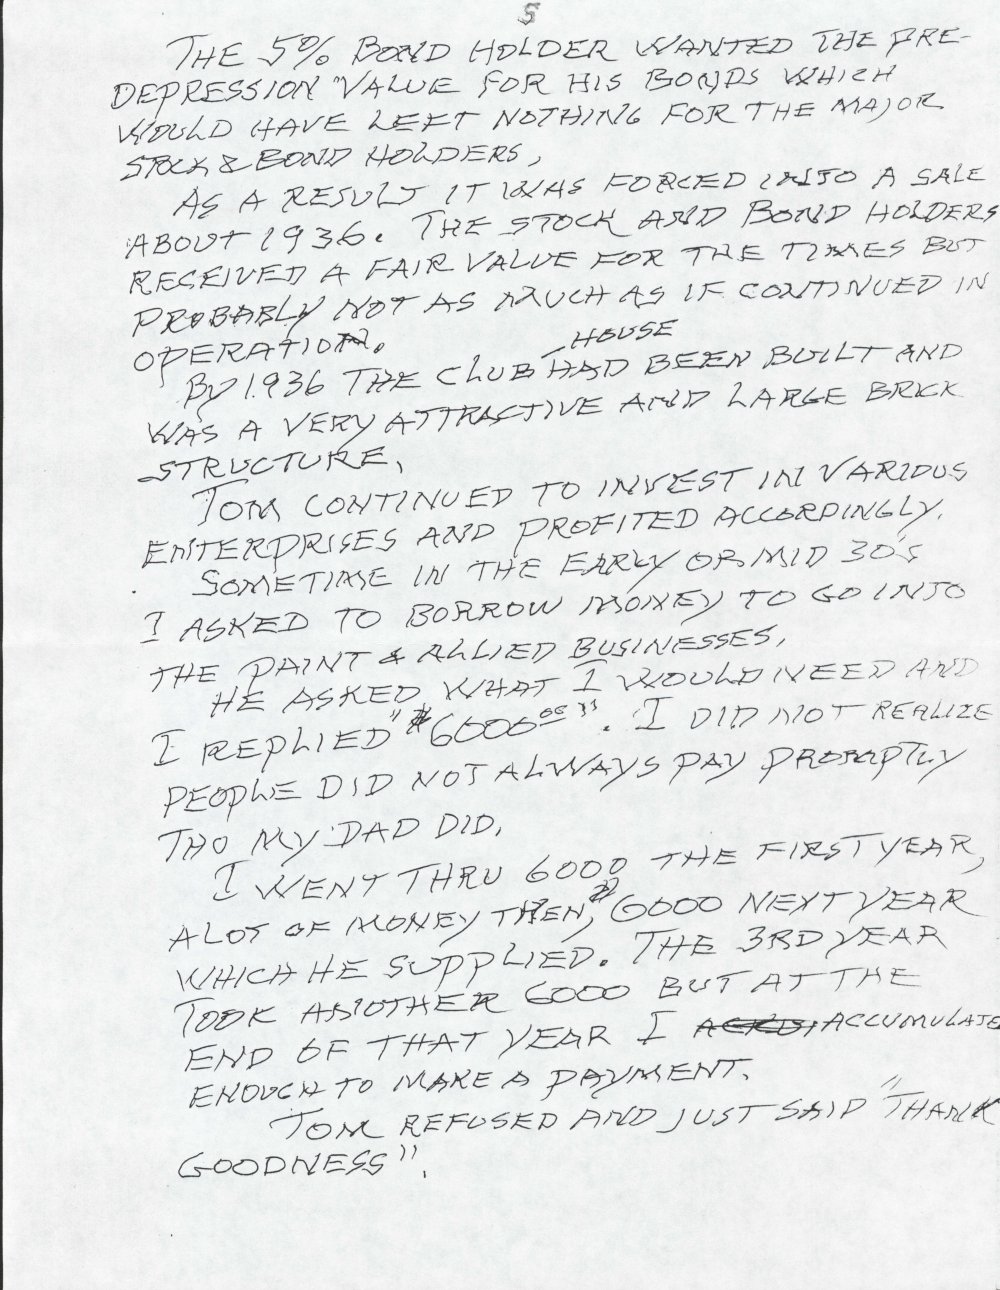 5
THE 5% BOND HOLDER WANTED THE PRE-
DEPRESSION "VALUE FOR HIS BONDS WHICH
WOULD HAVE LEFT NOTHING FOR THE MAJOR
STOCK & BOND HOLDERS,
AS A RESULT IT WAS FORCED INTO A SALE
ABOUT 1936. THE STOCK AND BOND HOLDERS
RECEIVED A FAIR VALUE FOR THE TIMES BUT
PROBABLY NOT AS MUCH AS IF CONTINUED IN
OPERATION.
HOUSE
BY 1936 THE CLUB HAD BEEN BUILT AND
WAS A VERY ATTRACTIVE AND LARGE BRICK
STRUCTURE.
TOM CONTINUED TO INVEST IN VARIOUS
ENTERPRISES AND PROFITED ACCORDINGLY.
SOMETIME IN THE EARLY OR MID 30'S
I ASKED TO BORROW MONEY TO GO INTO
THE PAINT & ALLIED BUSINESSES.
HE ASKED WHAT I WOULD NEED AND
I REPLIED "$6000⁰⁰". I DID NOT REALIZE
PEOPLE DID NOT ALWAYS PAY PROMPTLY
THO MY DAD DID.
I WENT THRU 6000 THE FIRST YEAR,
A LOT OF MONEY THEN, 6000 NEXT YEAR
WHICH HE SUPPLIED. THE 3RD YEAR
TOOK ANOTHER 6000 BUT AT THE
END OF THAT YEAR I ACCUMULATE
ENOUGH TO MAKE A PAYMENT.
TOM REFUSED AND JUST SAID "THANK
GOODNESS".